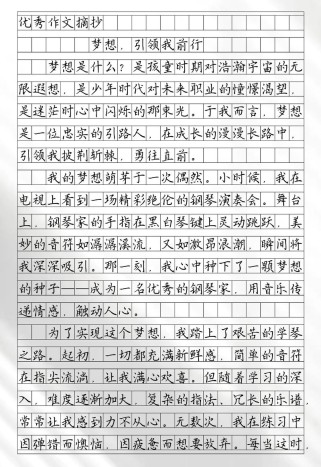 优秀作文摘抄
梦想，引领我前行
梦想是什么？是孩童时期对浩瀚宇宙的无
限遐想，是少年时代对未来职业的憧憬渴望，
是迷茫时心中闪烁的那束光。于我而言，梦想
是一位忠实的引路人，在成长的漫漫长路中，
引领我披荆斩棘，勇往直前。
我的梦想萌芽于一次偶然。小时候，我在
电视上看到一场精彩绝伦的钢琴演奏会。舞台
上，钢琴家的手指在黑白琴键上灵动跳跃，美
妙的音符如潺潺溪流，又如激昂浪潮，瞬间将
我深深吸引。那一刻，我心中种下了一颗梦想
的种子——成为一名优秀的钢琴家，用音乐传
递情感，触动人心。
为了实现这个梦想，我踏上了艰苦的学琴
之路。起初，一切都充满新鲜感，简单的音符
在指尖流淌，让我满心欢喜。但随着学习的深
入，难度逐渐加大，复杂的指法、冗长的乐谱，
常常让我感到力不从心。无数次，我在练习中
因弹错而懊恼，因疲惫而想要放弃。每当这时，